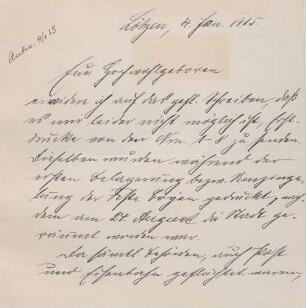 Lötzen, 4. Jan. 1915.
Antw. 9/1 15
Euer Hochwohlgeboren
erwidere ich auf das gefl. Schreiben, daß
es mir leider nicht möglich ist, Echt-
drucke von den Nrn. 1-8 zu senden.
Dieselben wurden während der
ersten Belagerung bezw. Umzinge-
lung der Feste Boyen gedruckt, nach-
dem am 24 August die Stadt ge-
räumt worden war.
Da sämtl. Behörden, auch Post
und Eisenbahn geflüchtet waren,